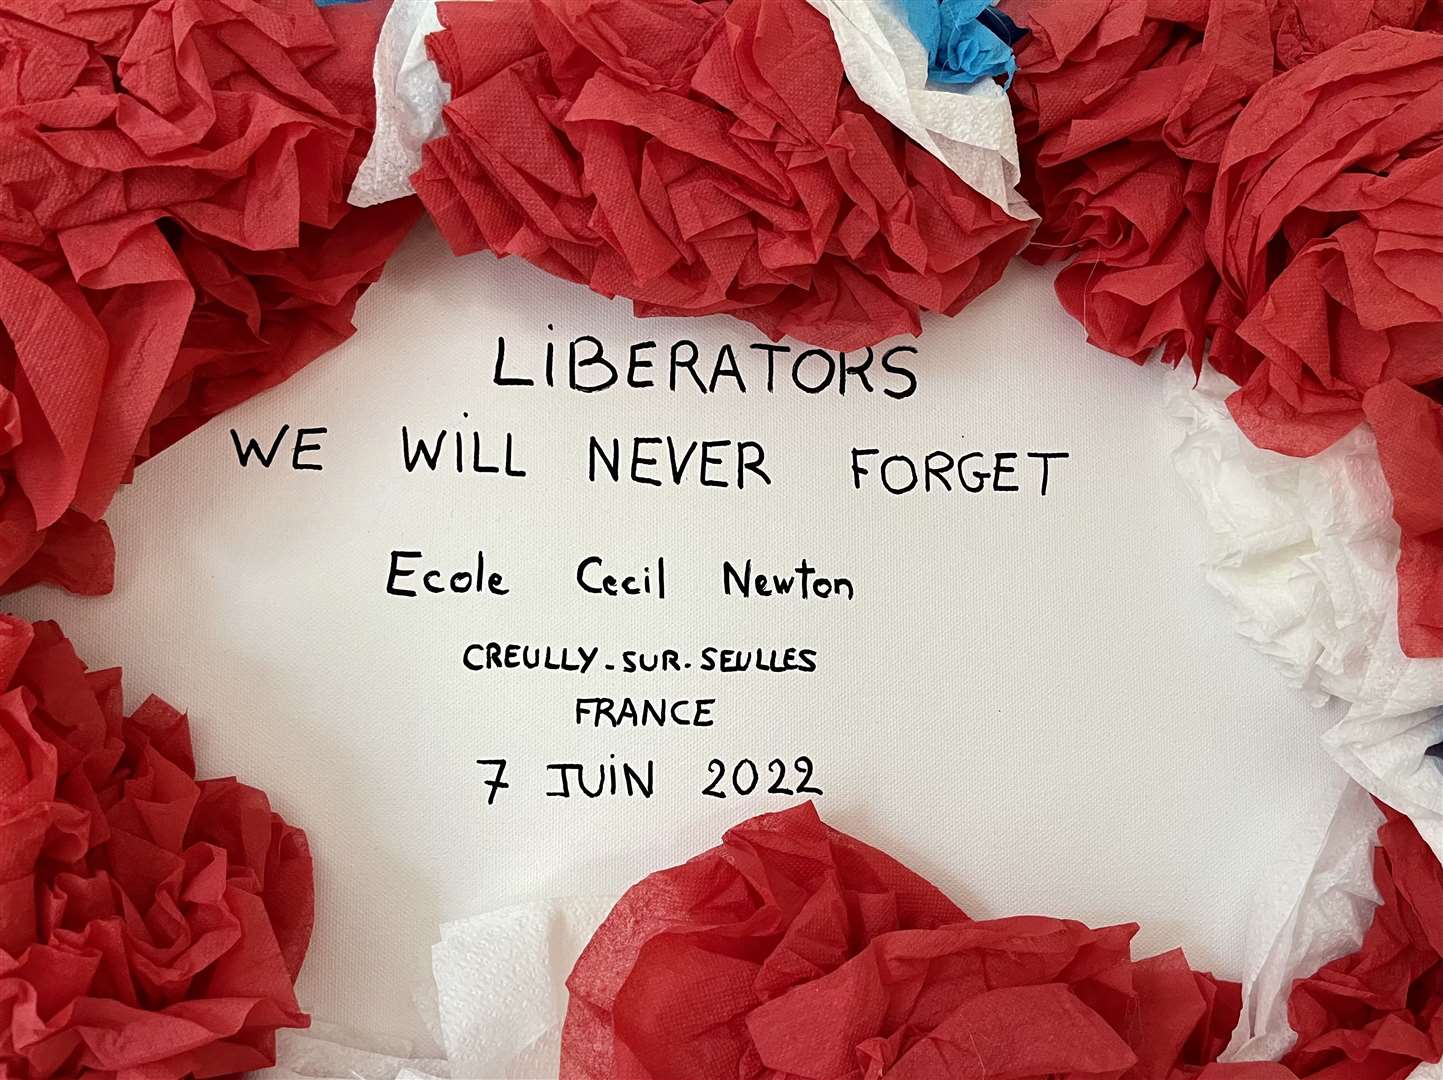 LIBERATORS
WE WILL NEVER FORGET
Ecole Cecil Newton
CREULLY-SUR-SEULLES
FRANCE
7 JUIN 2022